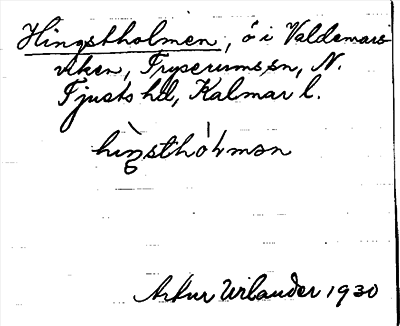 Hingstholmen, ö i Valdemars-
viken, Tryserums sn, N.
Tjusts hd, Kalmar l.
hìŋsthól̄mən
Artur Wilander 1930